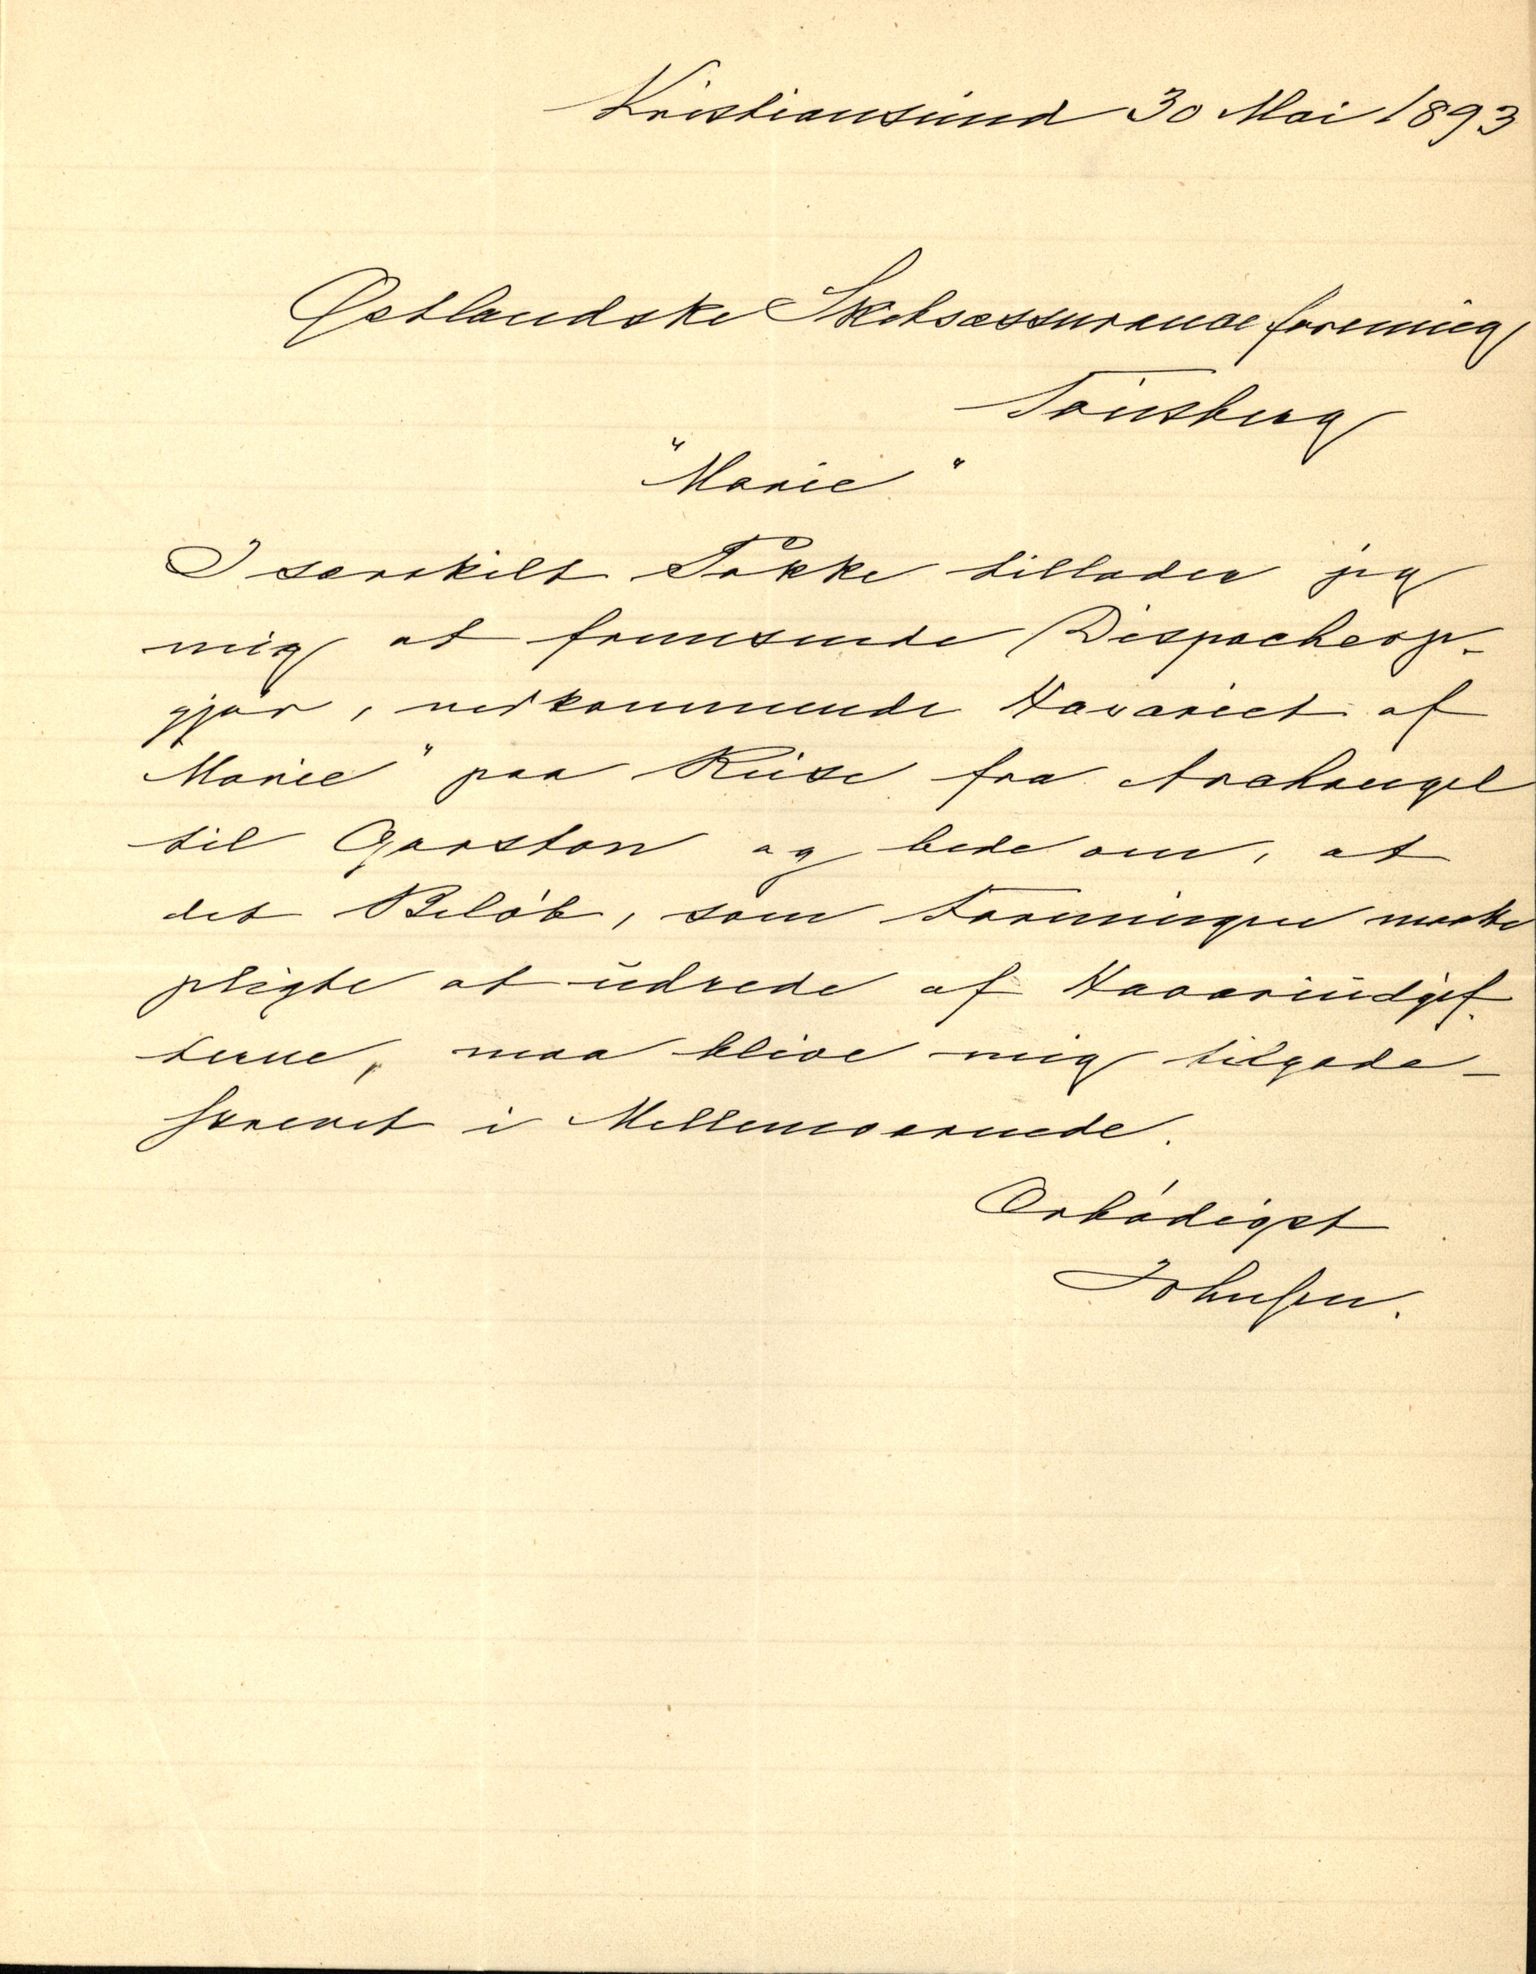 Kristiansund 30 Mai 1893
Østlandske Skibsassuranceforening
Tönsberg
"Marie"
I særskilt Pakke tillader jeg
mig at fremsende Dispacheop-
gjör, vedkommende Havariet af
Marie" paa Reise fra Archangel
til Garston og bede om, at
det Belöb, som Foreningen maatte
pligte at udrede af Havariudgif-
terne, maa blive mig tilgode-
skrevet i Mellemværende.
Ærbödigst
Johnsen.